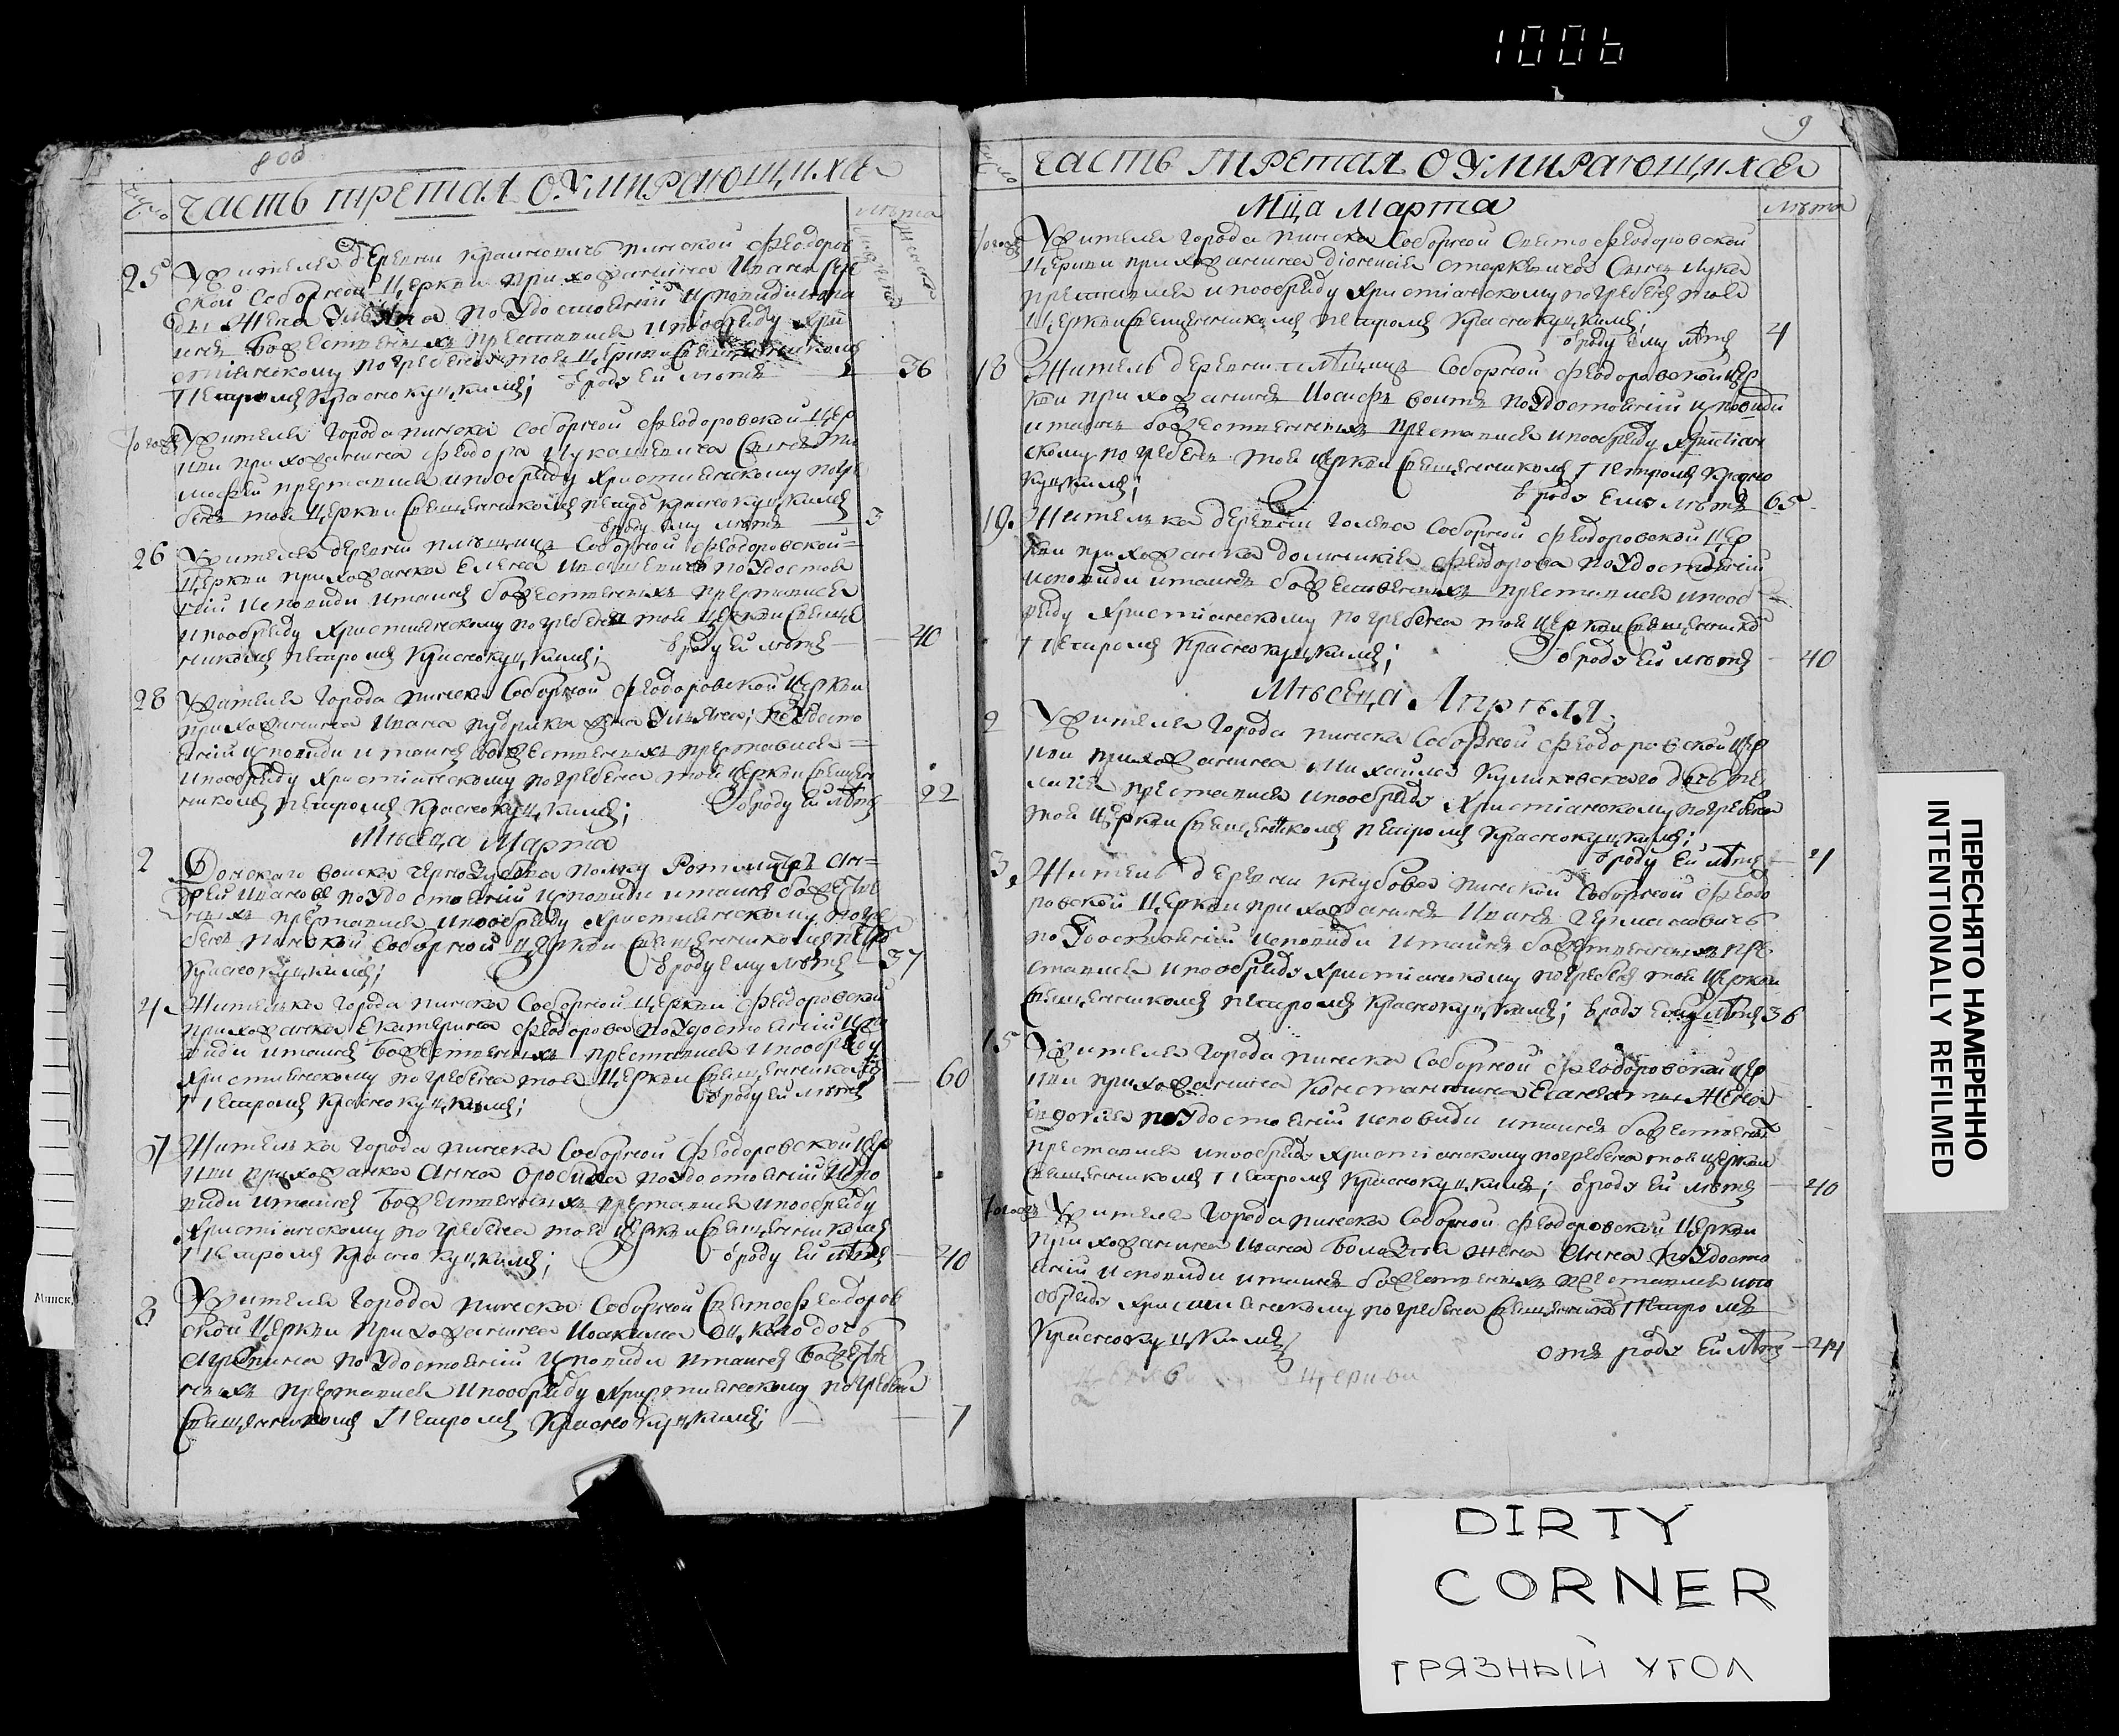 1006
часть третая о умирающихся
число
лѣта
мужеска
женска
25 У жителя деревни пинской Феодоров
ской Соборной церкви прихожанина Ивана
жена Ульяна по удостоенiи исповиди и та
инъ божественныхъ преставися и пообряду Хри
стiянскому погребена тоя церкви Священникомъ
Петромъ Краснокуцкимъ; ѿ роду ей лѣтъ 36
тогожъ У жителя города пинска Соборной Феодоровской цер
кви прихожанина Феодора Лукашевича сынъ Ти
мофей преставися и пообряду Християнскому погре
бенъ тоя церкви Священникомъ Петромъ Краснокуцкимъ
ѿ роду ему лѣтъ 3
26 У жителя деревни Соборной Феодоровской
церкви прихожанка Елена по удостое
нiи исповиди и таинъ божественныхъ преставися
и пообряду Християнскому погребена тоя церкви Свяще
нникомъ Петромъ Краснокуцкимъ; ѿ роду ей лѣтъ 40
28 У жителя города пинска Соборной Феодоровской церкви
прихожанина Ивана жена Ульяна; по удосто
енiи исповиди и таинъ божественныхъ преставися
и пообряду Христiянскому погребена тоя церкви Священ
никомъ Петромъ Краснокуцкимъ; ѿ роду ей лѣтъ 22
Мѣсяца Марта
2 Донскаго войска Чернозубова полку Ротмистръ Ан
дрей Ивановъ по удостоенiи исповиди и таинъ божестве
нныхъ преставися и пообряду Християнскому погре
бенъ пинской Соборной церкви Священникомъ Петро
Краснокуцкимъ; ѿ роду ему лѣтъ 37
4 Жителька города пинска Соборной церкви Феодоровской
прихожанка Екатерина Феодорова по удостоенiи испо
види и таинъ божественныхъ преставися и пообряду
Християнскому погребена тоя церкви Священникомъ
Петромъ Краснокуцкимъ; ѿ роду ей лѣтъ 60
7 Жителька города пинска Соборной Феодоровской цер
кви прихожанка Анна по удостоенiи испо
види и таинъ божественныхъ преставися и пообряду
Христiянскому погребена тоя церкви Священникомъ
Петромъ Краснокуцкимъ; ѿ роду ей лѣтъ 40
8 У жителя города пинска Соборной Святофеодоров
ской церкви прихожанина Иоакима дочь
Агрипина по удостоенiи исповиди и таинъ божестве
нныхъ преставися и пообряду Християнскому погребена
Священникомъ Петромъ Краснокуцкимъ; 7
9
число
часть третая о умирающихся
Мца Марта
лѣта
тогожъ У жителя города пинска Соборной Святофеодоровской
церкви прихожанина сынъ Лука
преставися и пообряду Христiанскому погребенъ тоя
церкви Священникомъ Петромъ Краснокуцкимъ;
ѿ роду ему лѣтъ 4
18 Житель деревни Соборной Феодоровской цер
кви прихожанинъ Иосифъ по удостоенiи исповиди
и таинъ божественныхъ преставися и пообряду Христiан
скому погребенъ тоя церкви Священникомъ Петромъ Красно
куцкимъ; ѿ роду ему лѣтъ 65
19. Жителька деревни Соборной Феодоровской цер
кви прихожанка Феодорова по удостоенiи
исповиди и таинъ божественныхъ преставися и пооб
ряду Христiанскому погребена тоя церкви Священнико
Петромъ Краснокуцкимъ; ѿ роду ей лѣтъ 40
Мѣсеца Апрѣля
2 У жителя города пинска Соборной Феодоровской цер
кви прихожанина Михайла Куликовского дочь Пе
лагiя преставися и пообряду Христiанскому погребена
тоя церкви Священникомъ Петромъ Краснокуцкимъ;
ѿ роду ей лѣтъ 4
3, Житель деревни пинской Соборной Феодо
ровской церкви прихожанинъ Иванъ Германовичъ
по удостоенiи исповиди и таинъ божественныхъ пре
ставися и пообряду Христiанскому погребенъ тоя церкви
Священникомъ Петромъ Краснокуцкимъ; ѿ роду ему лѣтъ 36
15 У жителя города пинска Соборной Феодоровской цер
кви прихожанина Константина жена
по удостоенiи исповиди и таинъ божествены
преставися и пообряду Христiанскому погребена тоя церкви
Священникомъ Петромъ Краснокуцкимъ; ѿ роду ей лѣтъ 40
тогожъ У жителя города пинска Соборной Феодоровской церкви
прихожанина Ивана жена Анна по удосто
енiи исповиди и таинъ божественныхъ преставися и по
обряду Християнскому погребена Священико Петромъ
Краснокуцкимъ отъ роду ей лѣтъ 44
церкви
Минск,
ПЕРЕСНЯТО НАМЕРЕННО
INTENTIONALLY REFILMED
DIRTY
CORNER
ГРЯЗНЫЙ УГОЛ